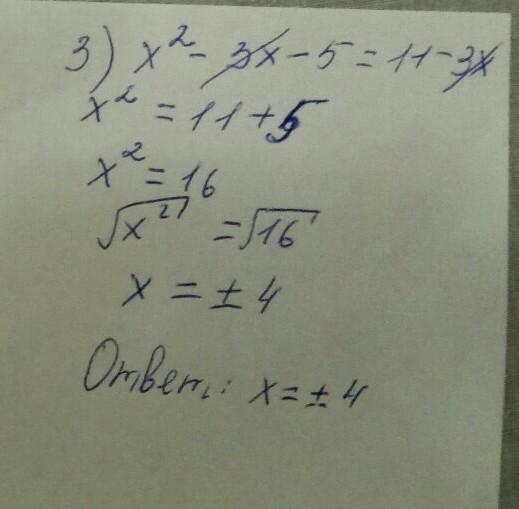 3) x² - 3x - 5 = 11 - 3x
x² = 11 + 5
x² = 16
√x² = √16
x = ± 4
Ответ: x = ± 4